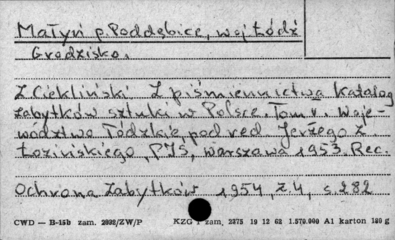 Małyń p. Poddębice, woj Łódź
Grodzisko.
Z Ciekliński Z piśmiennictwa Katalog
zabytków sztuki w Polsce. Tom V. Woje-
wództwo Łódzkie, pod red Jerzego Z
Łozińskiego, PIS, Warszawa 1953. Rec.
Ochrona Zabytków 1954, z 4, s. 282
CWD — B-15b zam. 2992/ZW/P KZG 1 zam. 2375 19 12 62 1.570.000 A1 karton 180 g